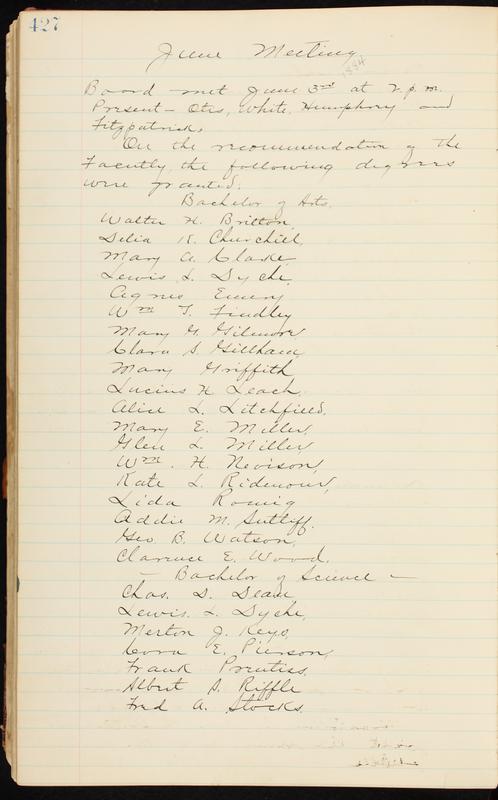 427
June Meeting
1884
Board met June 3rd at 2 p.m.
Present - Otis, White, Humphrey and
Fitzpatrick,
On the recommendation of the
Facutly, the following degrees
were granted:
Bachelor of Arts.
Walter H. Britton,
Delia K. Churchill,
Mary A. Clarke,
Lewis L. Dyche,
Agnes Emery
Wm T. Findley
Mary G. Gilmore,
Clara S. Gillham,
Mary Griffith
Lucius H Leach,
Alice L. Litchfield,
Mary E. Miller,
Glen L. Miller,
Wm. H. Nevison,
Kate L. Ridenour,
Lida Romig
Addie M. Sutliff.
Geo. B. Watson,
Clarence E. Wood.
- Bachelor of Science -
Chas. D. Dean,
Lewis. L. Dyche,
Merton J. Keys,
Cora E. Pierson,
Frank Prentiss,
Albert S. Riffle
Fred A. Stocks.